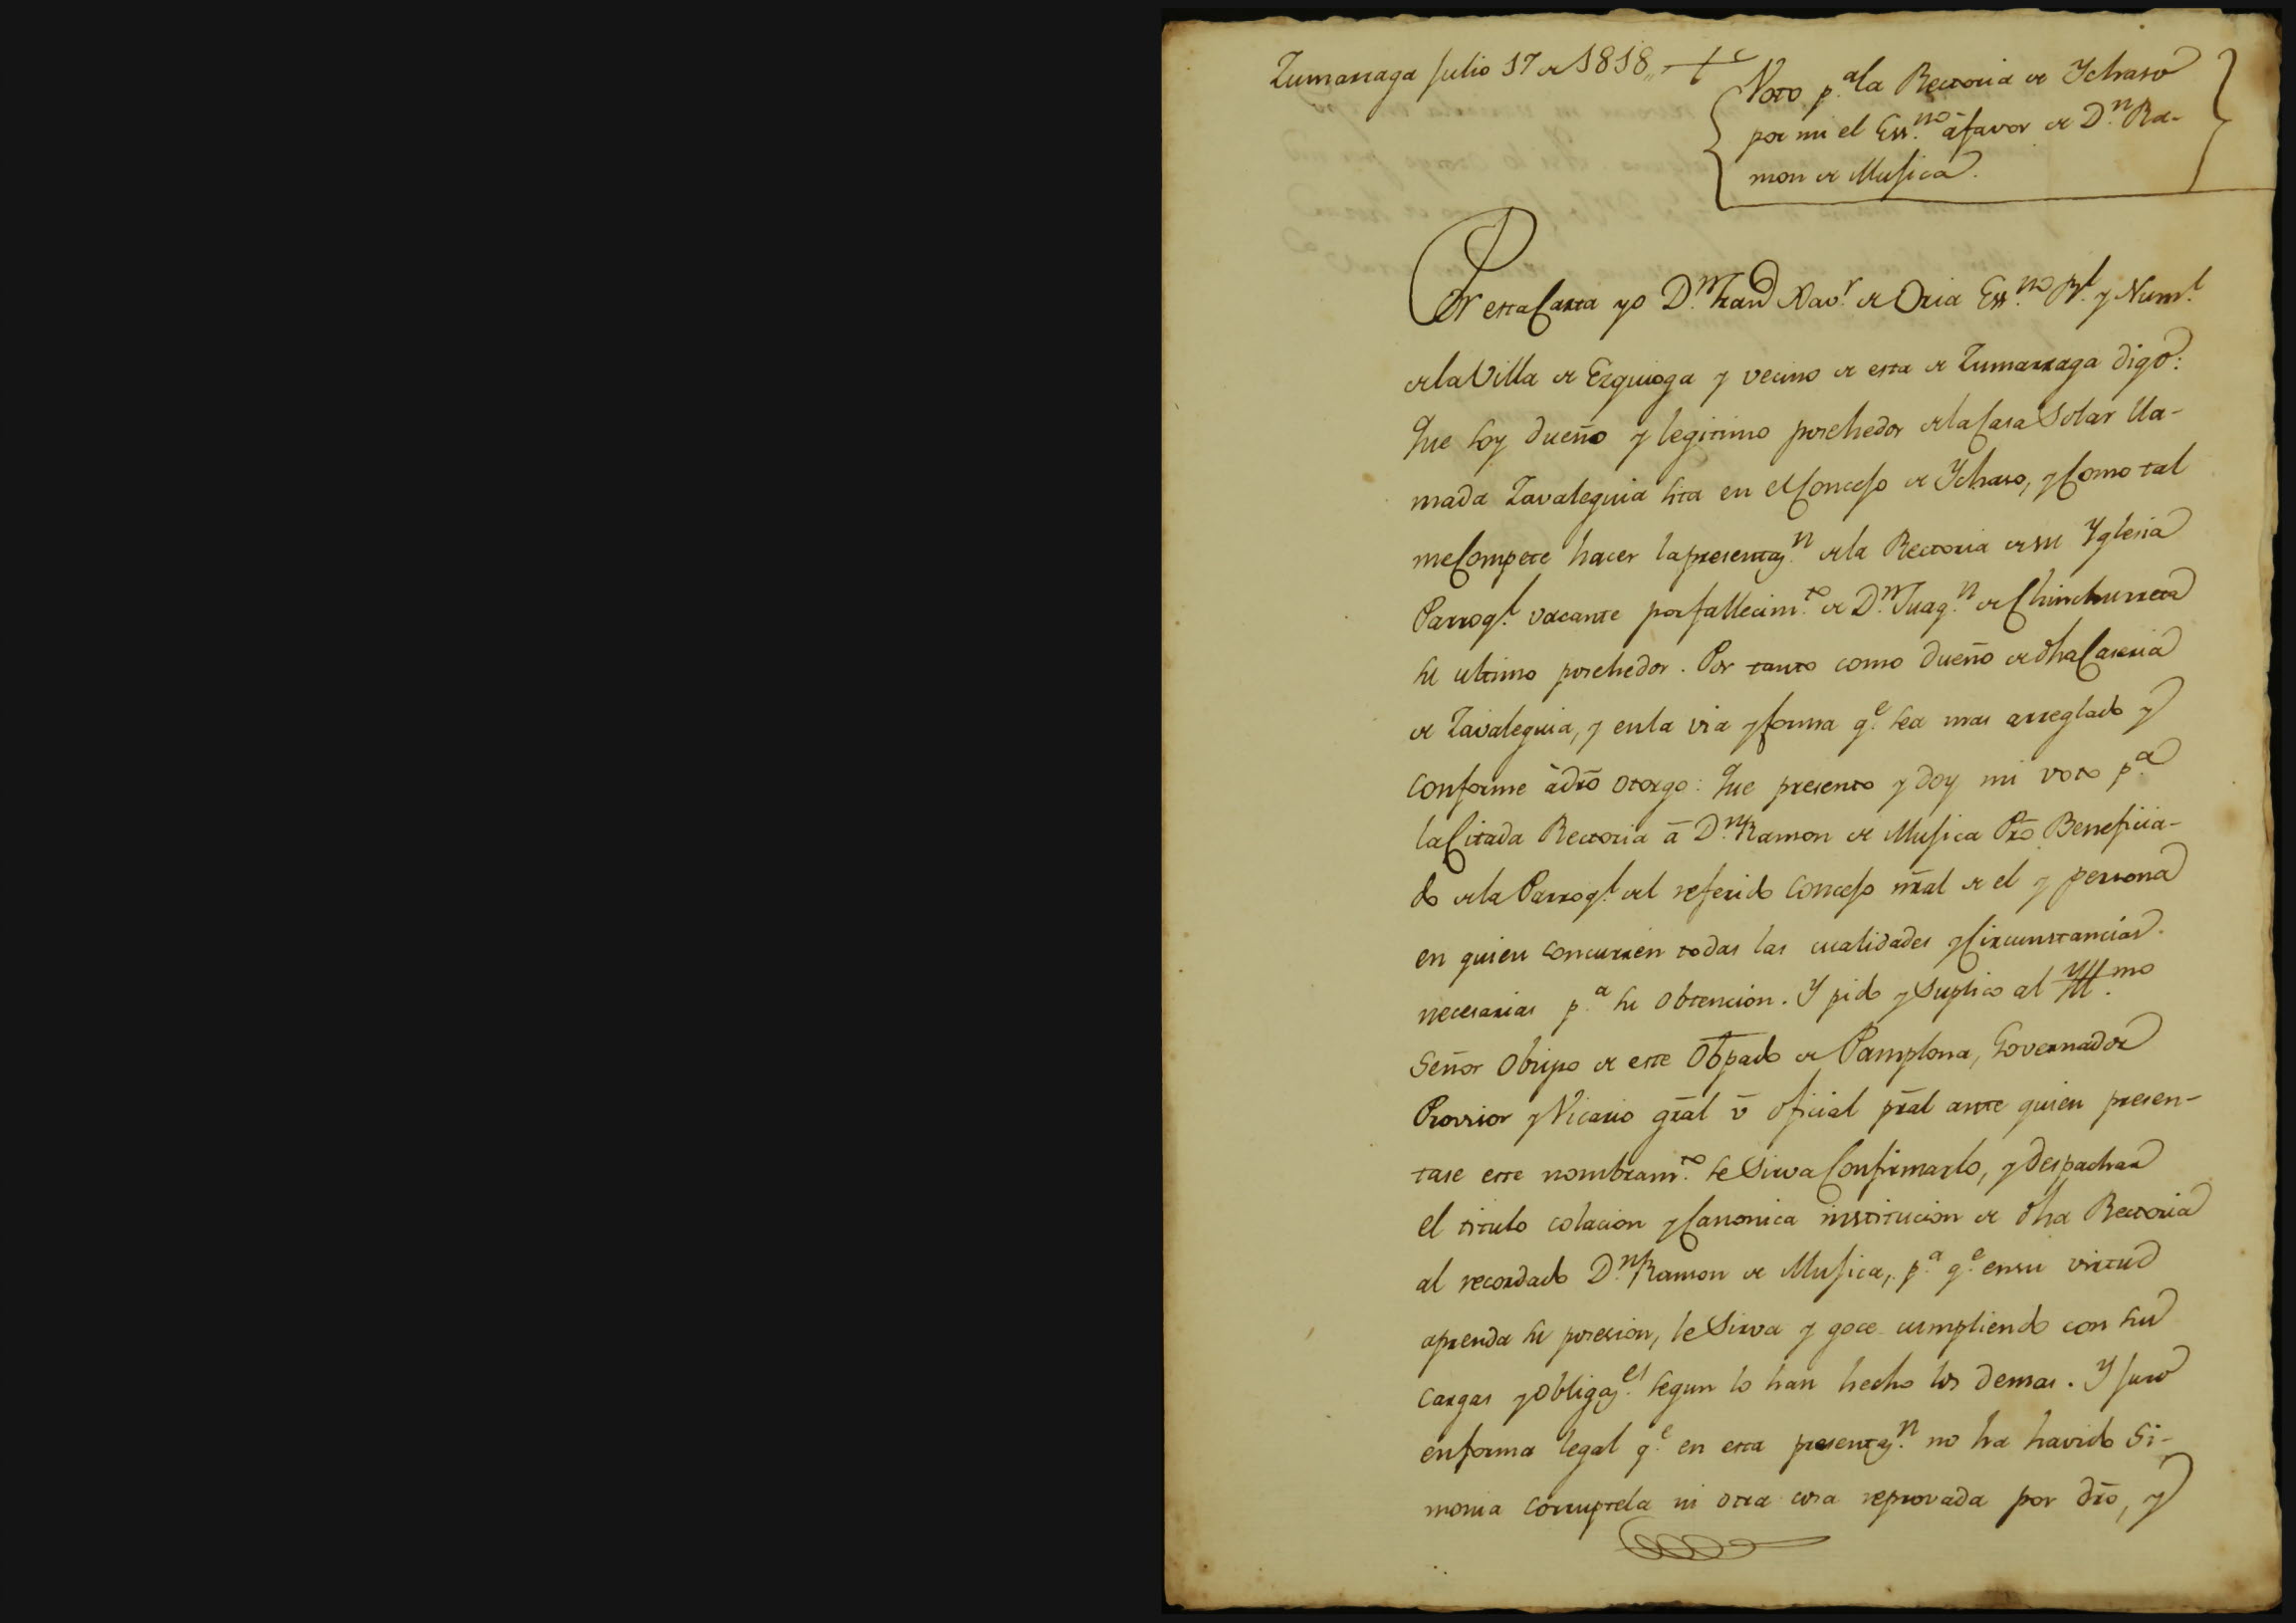 Zumarraga Julio 17 de 1818,,
Voto p.ª la Rectoria de Ychaso
por mi el Ess.no á favor de D.n Ra-
mon de Mugica.
Por esta Carta yo D.n Fran.co Xav.r de Oria Ess.no R.l y Num.l
de la Villa de Ezquioga y vecino de esta de Zumarraga digo:
Que soy dueño y legitimo posehedor de la Casa Solar lla-
mada Zavaleguia sita en el Concejo de Ychaso, y Como tal
me Compete hacer la presentaz.n de la Rectoria de su Yglesia
Parroq.l vacante por fallecim.to de D.n Juaq.n de Chinchurreta
su ultimo posehedor. Por tanto como dueño de dha Caseria
de Zavaleguia, y en la via y forma q.e sea mas arreglado y
conforme á dro otorgo: Que presento y doy mi voto p.ª
la Citada Rectoria á D.n Ramon de Mugica Pro Beneficia-
do de la Parroq.l del referido Concejo nral de el y persona
en quien concurren todas las cualidades y Circunstancias
necesarias p.ª su obtencion. Y pido y Suplico al Yll.mo
Señor Obispo de este Obpado de Pamplona, Governador
Provisor y Vicario gral ú oficial pral ante quien presen-
tase este nombram.to se Sirva Confirmarlo, y despachar
el titulo colacion y Canonica institucion de dha Rectoria
al recordado D.n Ramon de Mugica, p.ª q.e en su virtud
aprenda su posesion, le Sirva y goce cumpliendo con sus
cargas y obligaz.es segun lo han hecho los demas. Y juro
en forma legal q.e en esta presentaz.n no ha havido Si-
monia corruptela ni otra cosa reprovada por dro, y